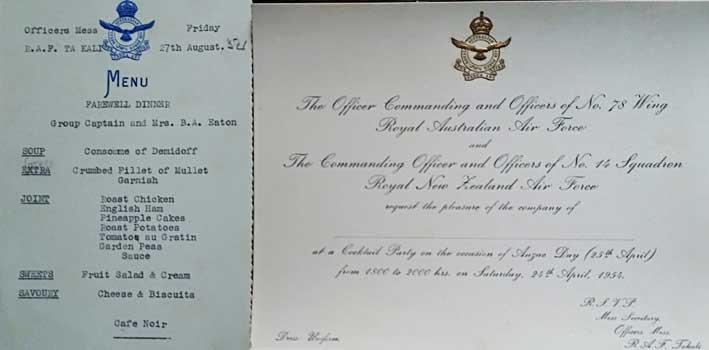 Officers Mess
Friday
R.A.F. TA KALI
27th August.
MENU
FAREWELL DINNER
Group Captain and Mrs. B.A. Eaton
SOUP Consomme of Demidoff
EXTRA Crumbed Fillet of Mullet
Garnish
JOINT Roast Chicken
English Ham
Pineapple Cakes
Roast Potatoes
Tomatoe au Gratin
Garden Peas
Sauce
SWEETS Fruit Salad & Cream
SAVOURY Cheese & Biscuits
Cafe Noir
The Officer Commanding and Officers of No. 78 Wing
Royal Australian Air Force
and
The Commanding Officer and Officers of No. 14 Squadron
Royal New Zealand Air Force
request the pleasure of the company of
at a Cocktail Party on the occasion of Anzac Day (25th April)
from 1800 to 2000 hrs. on Saturday, 24th April, 1954.
R.S.V.P.
Mess Secretary,
Officers Mess,
R.A.F. Takali
Dress Uniform